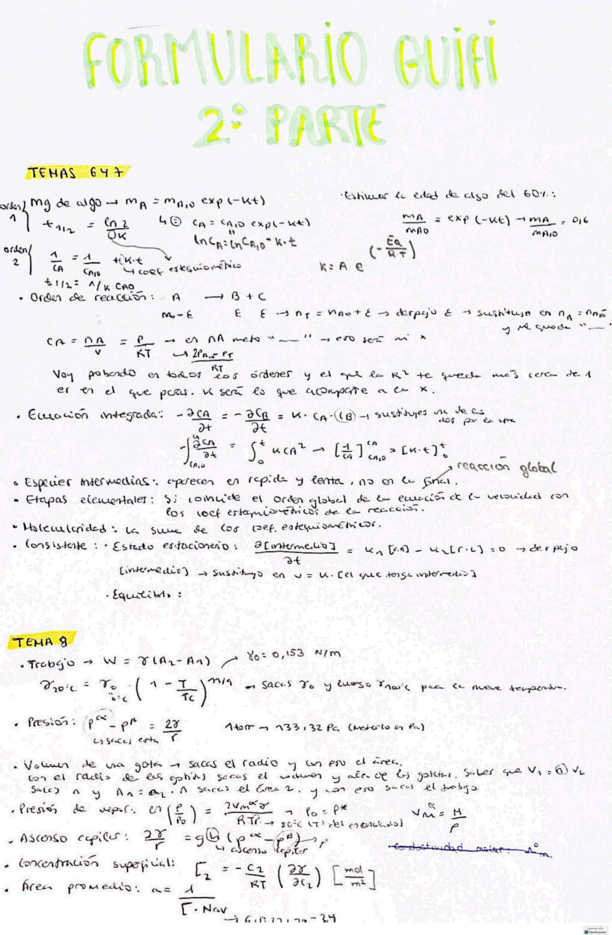 FORMULARIO GUIFI
2ª PARTE
TEMAS 6 y 7
orden 1 { mg de algo → mA = mA,0 exp(-Kt)
↳ ⊜ CA = CA,0 exp(-Kt)
t 1/2 = Ln 2 / K
ln CA = ln CA,0 - K·t
· Estimar la edad de algo del 60%:
mA / mA0 = exp(-Kt) → mA / mA,0 = 0,6
orden 2 { 1/CA = 1/CA,0 + K·t
↳ coef estequiométrico
t 1/2 = 1/K CA0
K = A e (- Ea / R T)
· Orden de reacción: A → B + C
E E → nT = nA0 + E → despejo E → sustituyo en nA =
y me queda "__"
CA = nA / V = P / RT → en nA meto "__" → eso será mi x
↳ 2PA,0 - PT / RT
Voy probando en todos los órdenes y el que la R² te quede más cerca de 1
es en el que pasas. K será lo que acompañe a la x.
· Ecuación integrada: -∂CA/∂t = -∂CB/∂t = K · CA · (CB) → sustituyes una de las
dos por la otra
= ∫₀ᵗ K CA² → [1/CA] CA CA,0 = [K·t]₀ᵗ
· Especies intermedias: aparecen en rápida y lenta, no en la final.
→ reacción global
· Etapas elementales: Si coincide el orden global de la ecuación de la velocidad con
los coef estequiométricos de la reacción.
· Molecularidad: La suma de los coef. estequiométricos.
· Consistente: · Estado estacionario: ∂[intermedio]/∂t = K1 [r.1] - K2 [r.2] = 0 → despejo
[intermedio] → sustituyo en v = K · [el que tenga intermedio]
· Equilibrio:
TEMA 8
· Trabajo → W = γ(A2 - A1) → γ0 = 0,153 N/m
γ20°C = γ0 · (1 - T/Tc)^11/9 → sacas γ0 y luego γ10°C para la nueva temperatura.
· Presión: P^α - P^β = 2γ / r
↳ sacas esta
1 torr → 133,32 Pa (Meterlo en Pa)
· Volumen de una gota → sacas el radio y con eso el área.
con el radio de las gotitas sacas el volumen y área de las gotitas. Saber que V1 = n V2
sacas n y A sacas el área 2. y con eso sacas el trabajo.
· Presión de vapor: ln (P/P0) = 2Vm^α γ / RTr → P0 = P*
Vm^α = M / ρ
· Ascenso capilar: 2γ / r = g h (ρ^α - ρ^β)
↳ ascenso capilar
· Concentración superficial: Γ2 = - C2 / RT (∂γ / ∂C2) [mol / m²]
· Área promedio: a = 1 / Γ · Nav